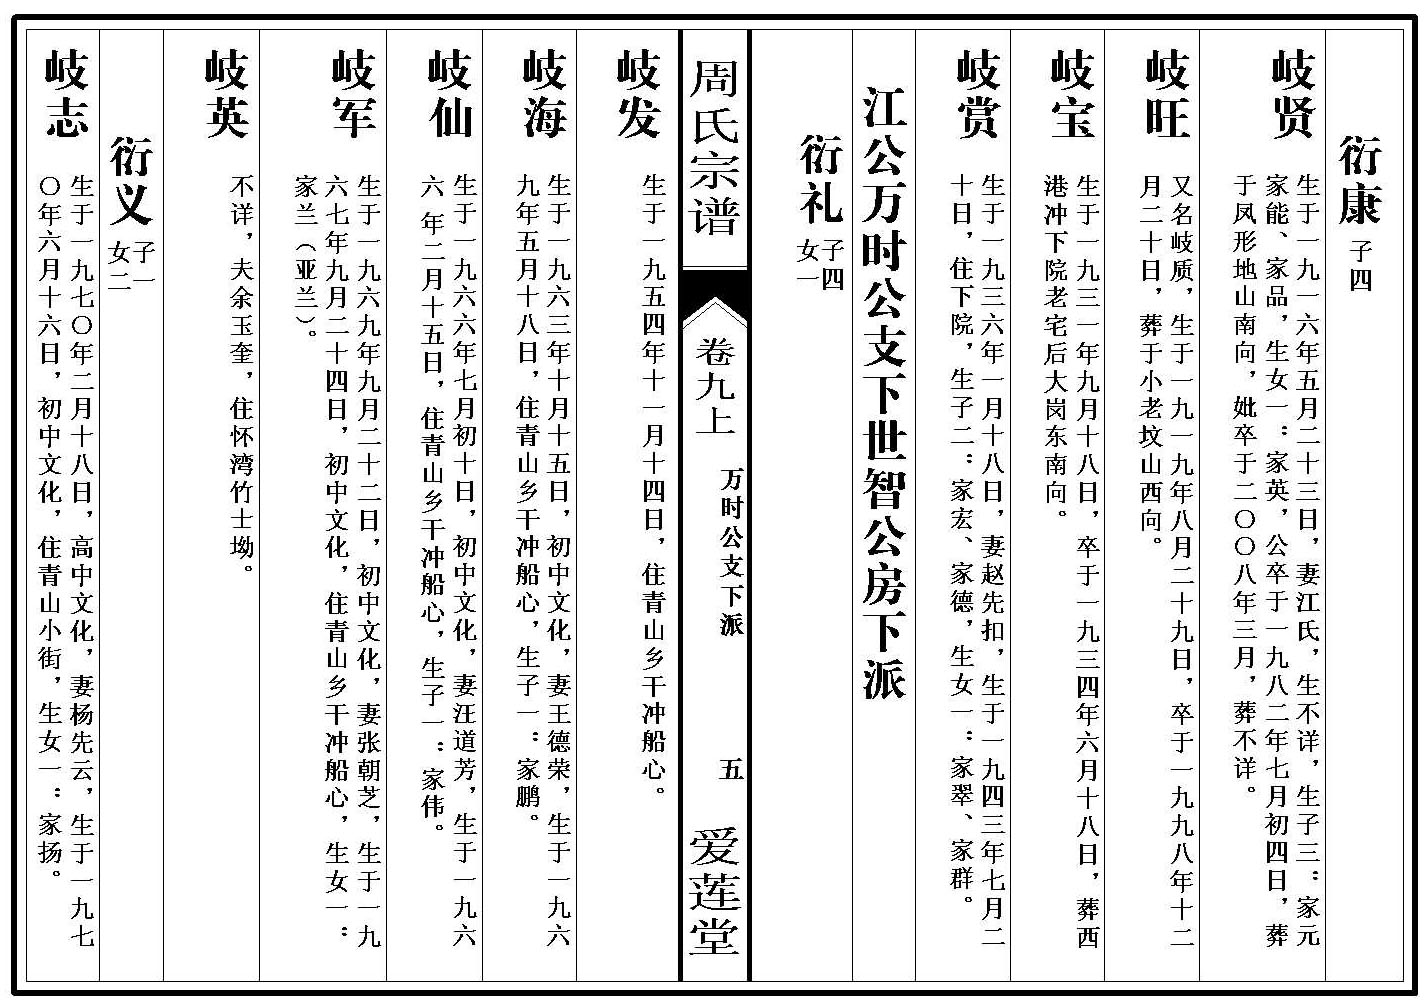 衍康 子四
岐贤
生于一九一六年五月二十三日，妻江氏，生不详，生子三：家元
家能、家品，生女一：家英，公卒于一九八二年七月初四日，葬
于凤形地山南向，妣卒于二〇〇八年三月，葬不详。
岐旺
又名岐质，生于一九一九年八月二十九日，卒于一九九八年十二
月二十日，葬于小老坟山西向。
岐宝
生于一九三一年九月十八日，卒于一九三四年六月十八日，葬西
港冲下院老宅后大岗东南向。
岐赏
生于一九三六年一月十八日，妻赵先扣，生于一九四三年七月二
十日，住下院，生子二：家宏、家德，生女一：家翠、家群。
江公万时公支下世智公房下派
衍礼 子四
女一
周氏宗谱
卷九上
万时公支下派
五
爱莲堂
岐发
生于一九五四年十一月十四日，住青山乡干冲船心。
岐海
生于一九六三年十月十五日，初中文化，妻王德荣，生于一九六
九年五月十八日，住青山乡干冲船心，生子一：家鹏。
岐仙
生于一九六六年七月初十日，初中文化，妻汪道芳，生于一九六
六 年二月十五日，住青山乡干冲船心，生子一：家伟。
岐军
生于一九六九年九月二十二日，初中文化，妻张朝芝，生于一九
六七年九月二十四日，初中文化，住青山乡干冲船心，生女一：
家兰（亚兰）。
岐英
不详，夫余玉奎，住怀湾竹士坳。
衍义 子一
女二
岐志
生于一九七〇年二月十八日，高中文化，妻杨先云，生于一九七
〇年六月十六日，初中文化，住青山小街，生女一：家扬。